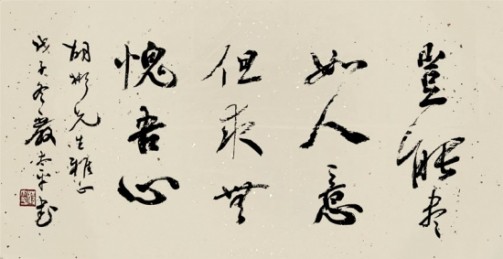 豈能尽
如人意
但求無
愧吾心
胡彬先生雅正
戊子冬嚴太平书